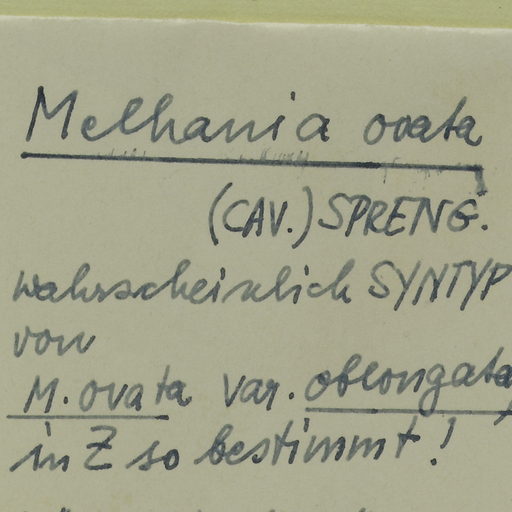 Melhania ovata
(CAV.) SPRENG.
wahrscheinlich SYNTYP
von
M. ovata var. oblongata,
in Z so bestimmt!